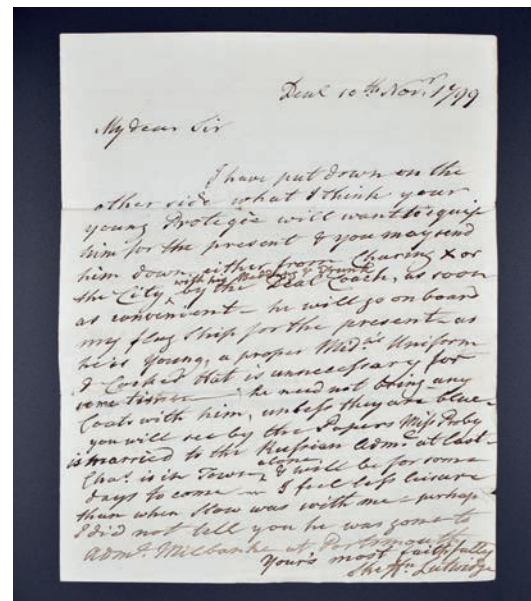 Deal 10th Novr. 1799
My dear Sir
I have put down on the
other side what I think your
young Protegèe will want to equip
him for the present & you may send
him down, either from Charing X or
with his Bedding & Trunk
the City ^ by the Deal Coach, as soon
as convenient - he will go on board
my flag Ship for the present - as
he is young, a proper Mid:ns Uniform
& Cocked Hat is unnecessary for
some time - he need not bring any
Coats with him, unless they are blue -
you will see by the Papers Miss Proby
is married to the Russian Adml. at last -
alone
Chas. is in Town ^ & will be for some
days to come - I feel less leisure
than when Stow was with me - perhaps
I did not tell you he was gone to
Adml. Milbanke at Portsmouth
Yours most faithfully
Skeffn. Lutwidge